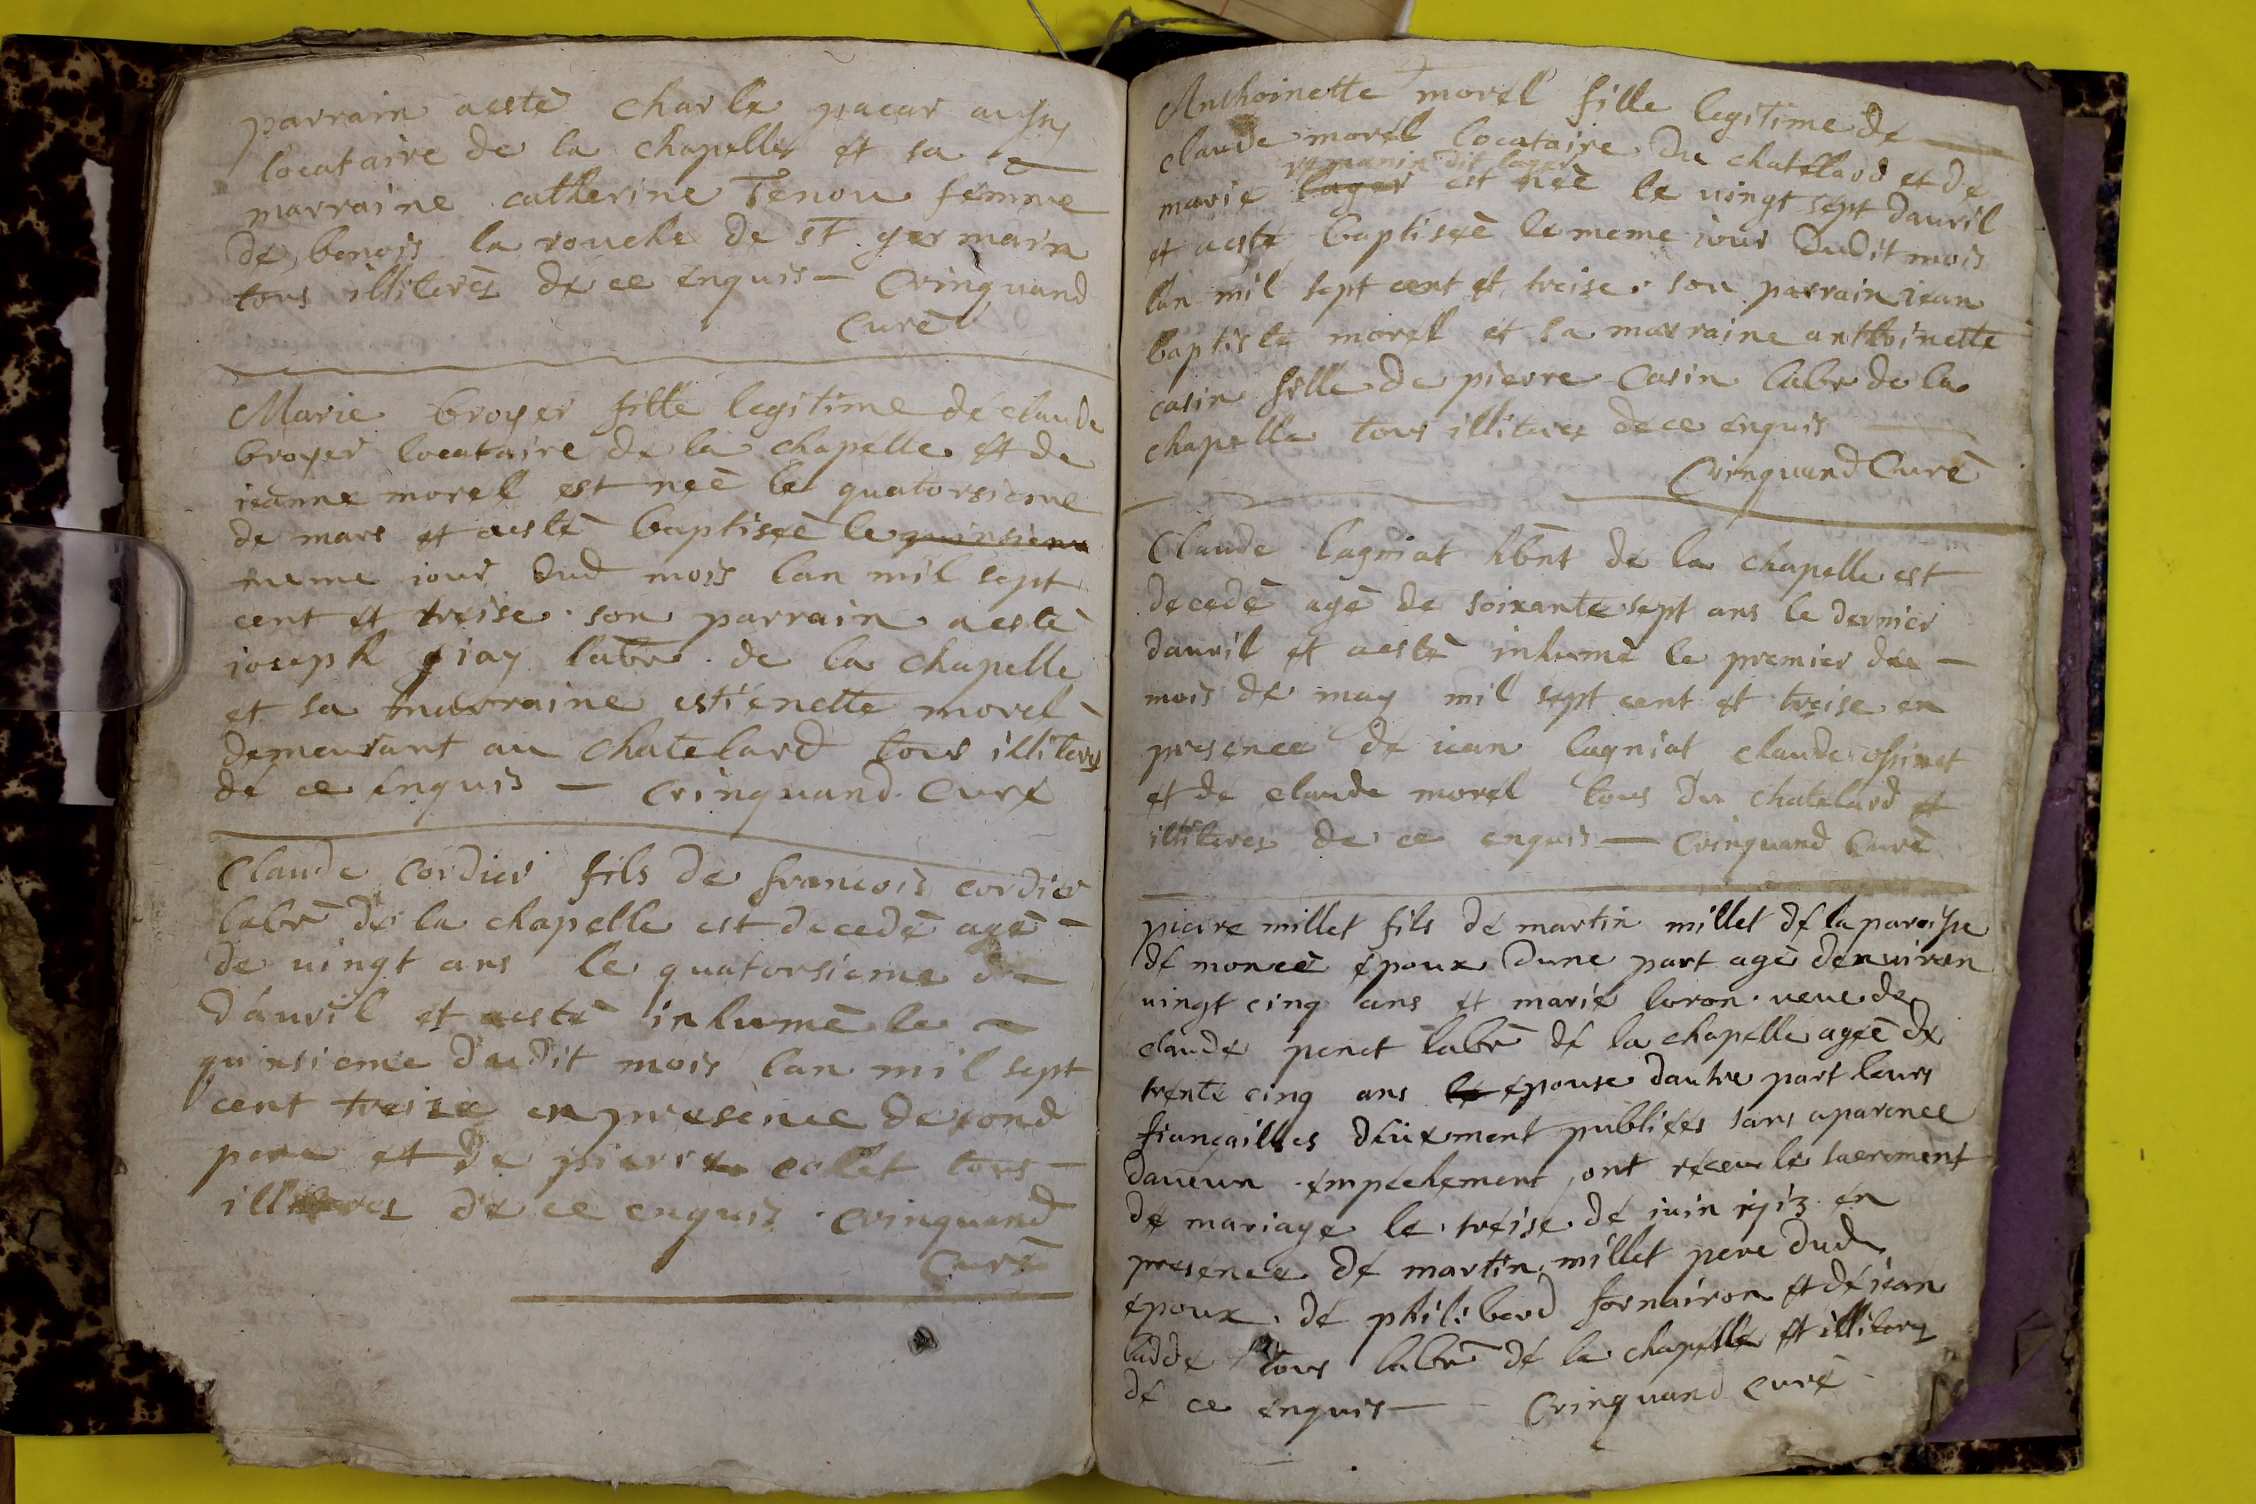 parrain aestè charle pacar aussy
locataire de la chapelle et sa
marraine catherine Tenou femme
de benois la rouche de st germain
tous illiterès de ce enquis — Crinquand
Curè
Marie broyer fille legitime de claude
broyer locataire de la chapelle et de
ieanne morel est neè le quatorsieme
de mars et aestè baptiseè le quinsieme
meme iour dud mois lan mil sept
cent et treise son parrain aestè
ioseph iay labr de la chapelle
et sa marraine estienette morel
demeurant au chatelard tous illiteres
de ce enquis — Crinquand Curé
Claude Cordier fils de francois cordier
labr de la chapelle est decedè agè —
de uingt ans le quatorsieme d
dauril et aestè inhumè le —
quinsieme dudit mois lan mil sept
cent treize en presence de son
pere et de pierre collet tous —
illiteres de ce enquis Crinquand
Curè
Anthoinette morel fille legitime de
claude morel locataire du chatelard et de
romanin dit lager
marie lager est neè le uingt sept dauril
et aestè baptiseè le meme iour dudit mois
lan mil sept cent et treise. son parrain iean
baptiste morel et sa marraine anthoinette
casin fille de pierre Casin labr de la
chapelle tous illiteres de ce enquis
Crinquand Curè
Claude lagniat hbnt de la chapelle est
decedè agè de soixante sept ans le dernier
dauril et aestè inhumè le premier du —
mois de may mil sept cent et treise en
presence de iean lagniat claude
et de claude morel tous du chatelard et
illiteres de ce enquis — Crinquand Curè
pierre millet fils de martin millet de la paroisse
de monceè époux dune part agè denuiron
uingt cinq ans et marie loron ueue de
claude penet labr de la chapelle ageè de
trente cinq ans le épouse dautre part leurs
fiançailles dûëment publiées sans aparence
daucun empechement ont réceu le sacrement
de mariage le treise de iuin 1713 en
presence de martin millet pere dud
époux, de philibard fornairon et de iean
ladde tous labr de la chapelle et illiteres
de ce enquis — Crinquand curé